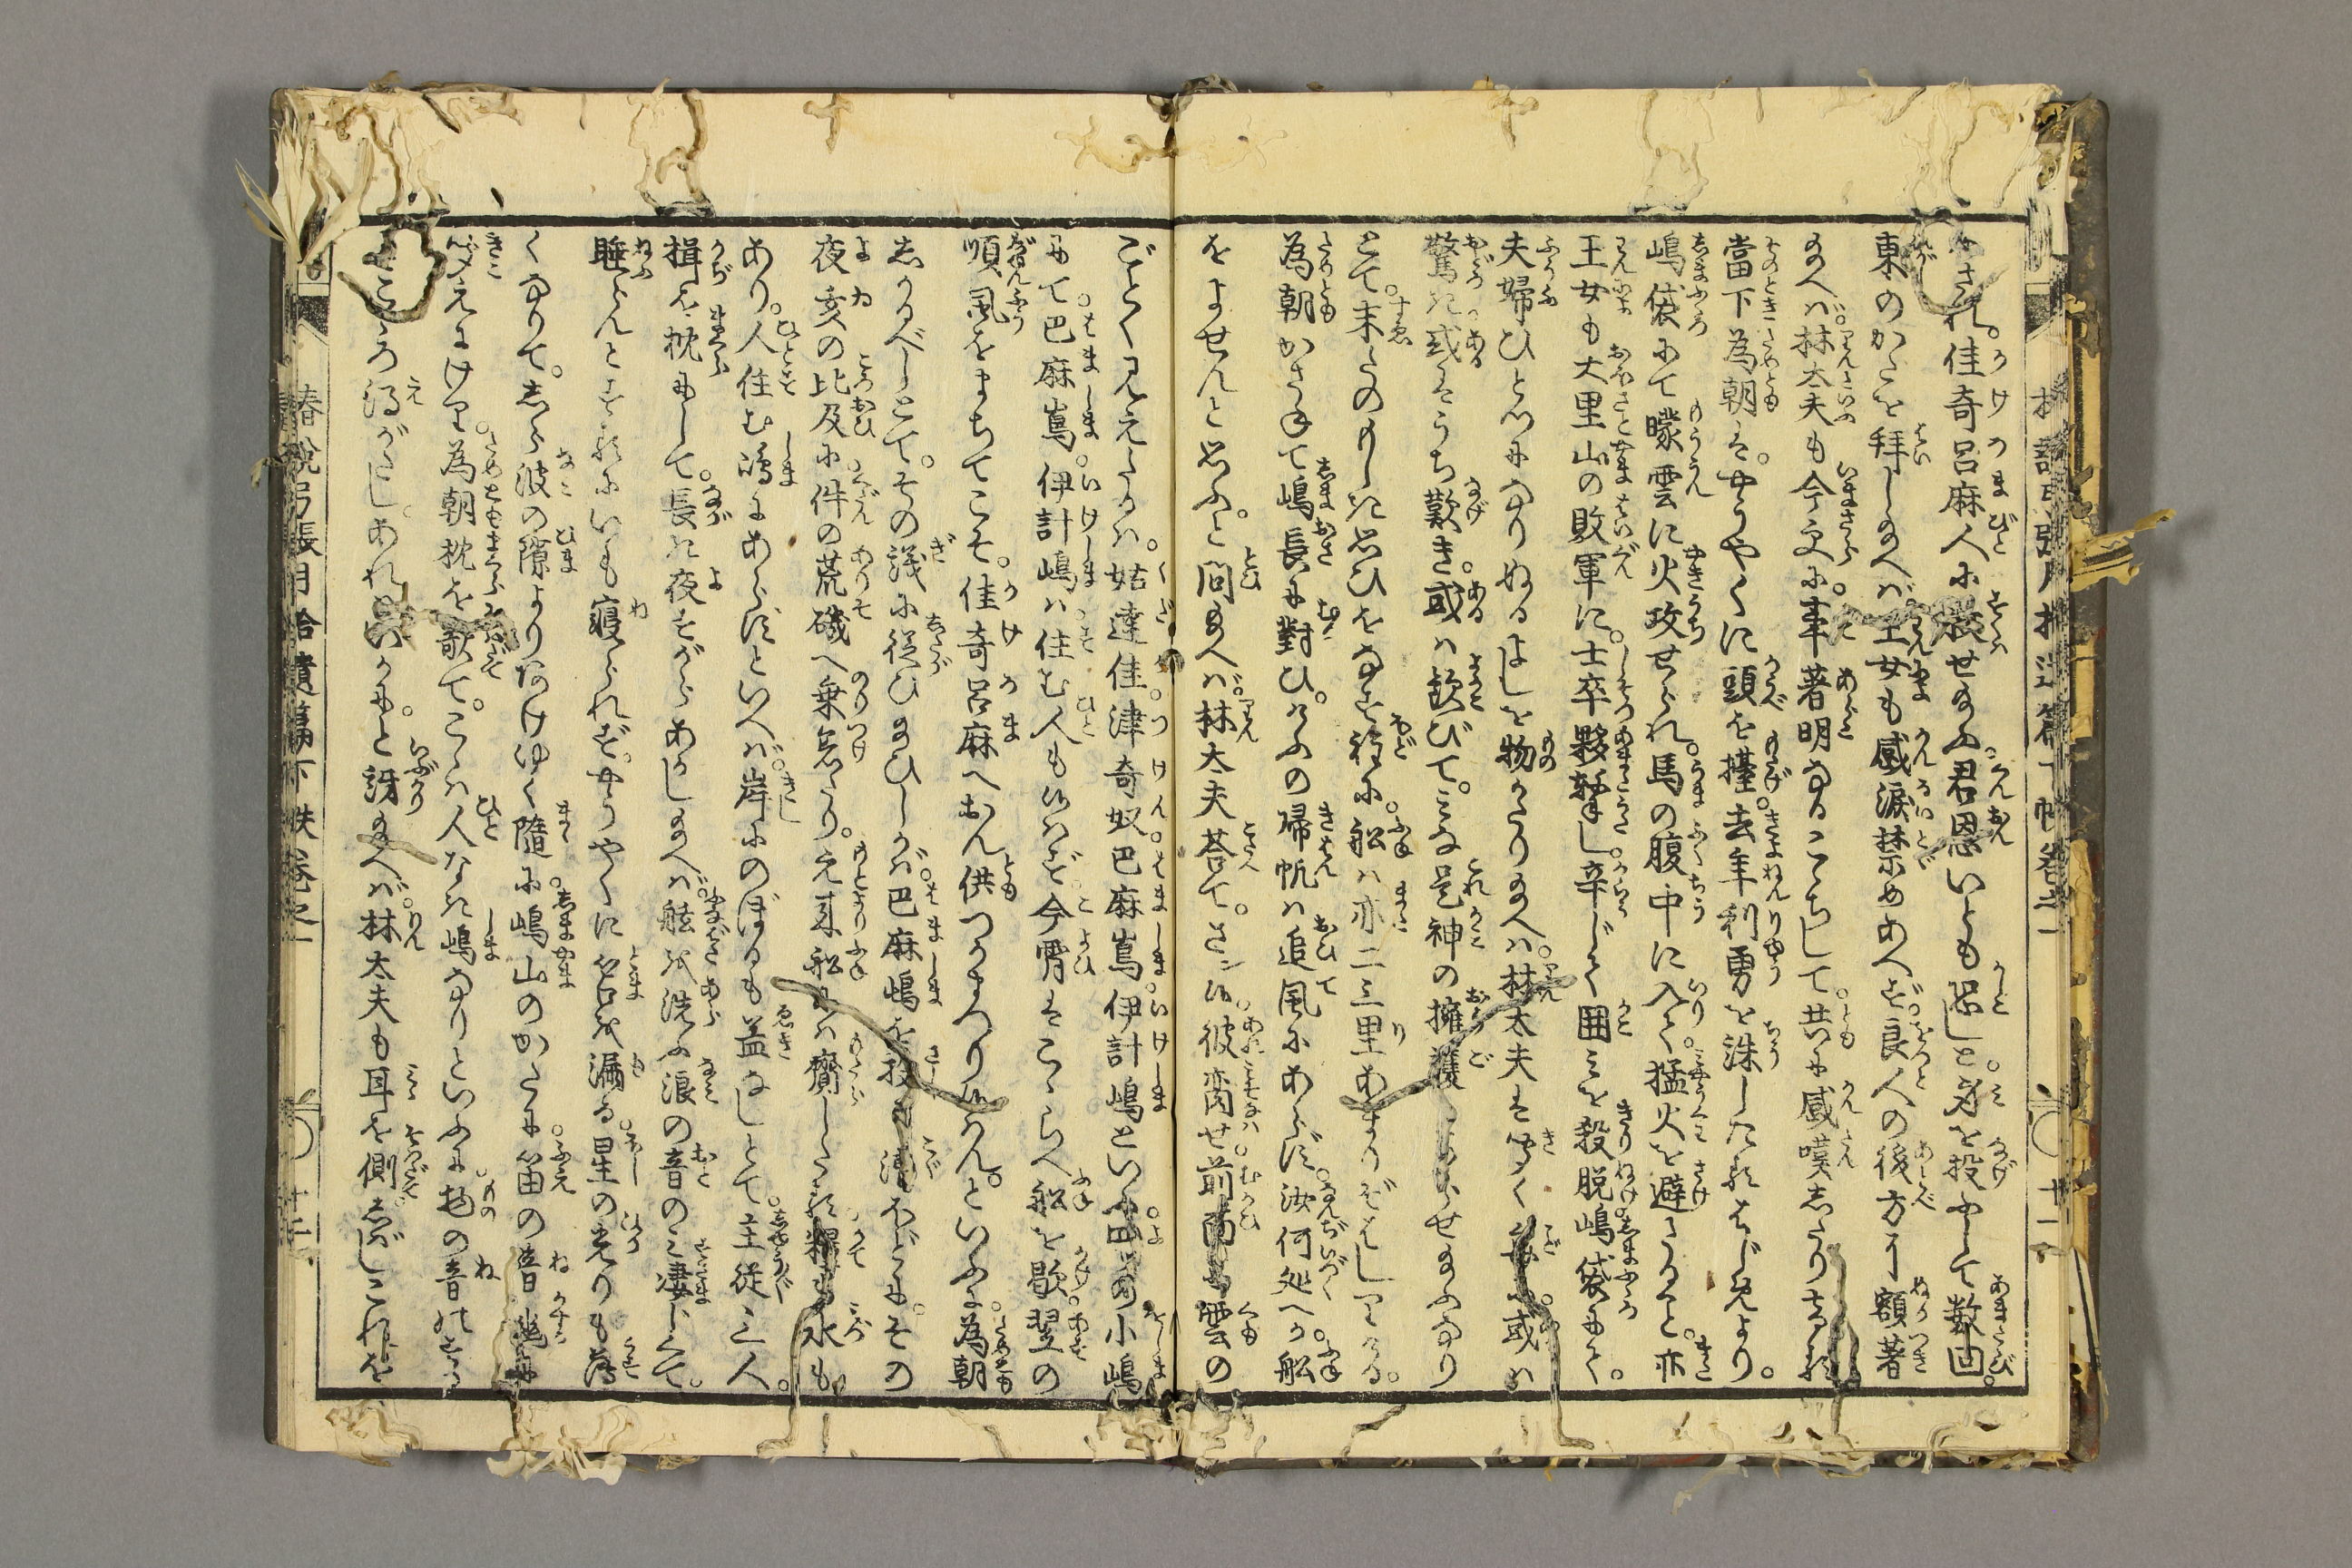 佳奇呂麻人に戻せ給ふ。君恩いとも忝しと。身を投ふして数回
東のかたを拝し給へば。王女も感涙禁めあへず。良人の後方に額著
給へば。林太夫も今更に。事著明なるこゝちして。共に感嘆したりける
當下為朝は。やうやくに頭を擡。去年利勇を誅したるはじめより。
嶋袋にて曚雲に火攻せられ。馬の腹中に入て猛火を避たる事。亦
王女も大里山の敗軍に。士卒夥撃し。辛じて囲みを殺脱。嶋袋にて。
夫婦ひとつになりぬるよしを物かたり給へば。林太夫は聞く毎に。或は
驚き或はうち歎き。或は歓びて。みな是神の擁護
とて。末たのもしき思ひをなす程に。船は亦二三里あまりぞはしりける。
為朝かさねて嶋長に對ひ。けふの帰帆は追風にあらず。汝何処へか船
をよせんと思ふ。と問給へば。林太夫荅て。さン候彼処前面雲の
ごとく見えたるは。姑達佳。津奇奴。巴麻嶌。伊計嶋といふ四の小嶋
にて。巴麻嶌。伊計嶋は住む人も候はず。今宵はこゝらへ船を歇。翌の
順風をまちてこそ。佳奇呂麻へおん供つかまつり候はん。といふに為朝
しかるべしとて。その議に従ひ給ひしかば。巴麻嶋を投て漕ほどに。その
夜亥の比及に件の荒磯へ乗着たり。元来船には齎したる糧も水も
あり。人住む嶋にあらずといへば。岸にのぼるも益なしとて。主従三人。
揖を枕にして。長き夜すがらあかし給へば。舷を洗ふ浪の音のみ凄しくて。
睡らんとするにいも寝られず。やうやくに苫を漏る星の光りも薄
くなりて。しら波の隙よりあけゆく隨に。嶋山のかたに笛の音幽に
聞えにけり。為朝枕を欹て。こゝは人なき嶋なりといふに。物の音のする
こころ得がたし。あれ いかに。と訝給へば。林太夫も耳を側。しばしこれを
椿説弓張月拾遺篇下帙巻之一